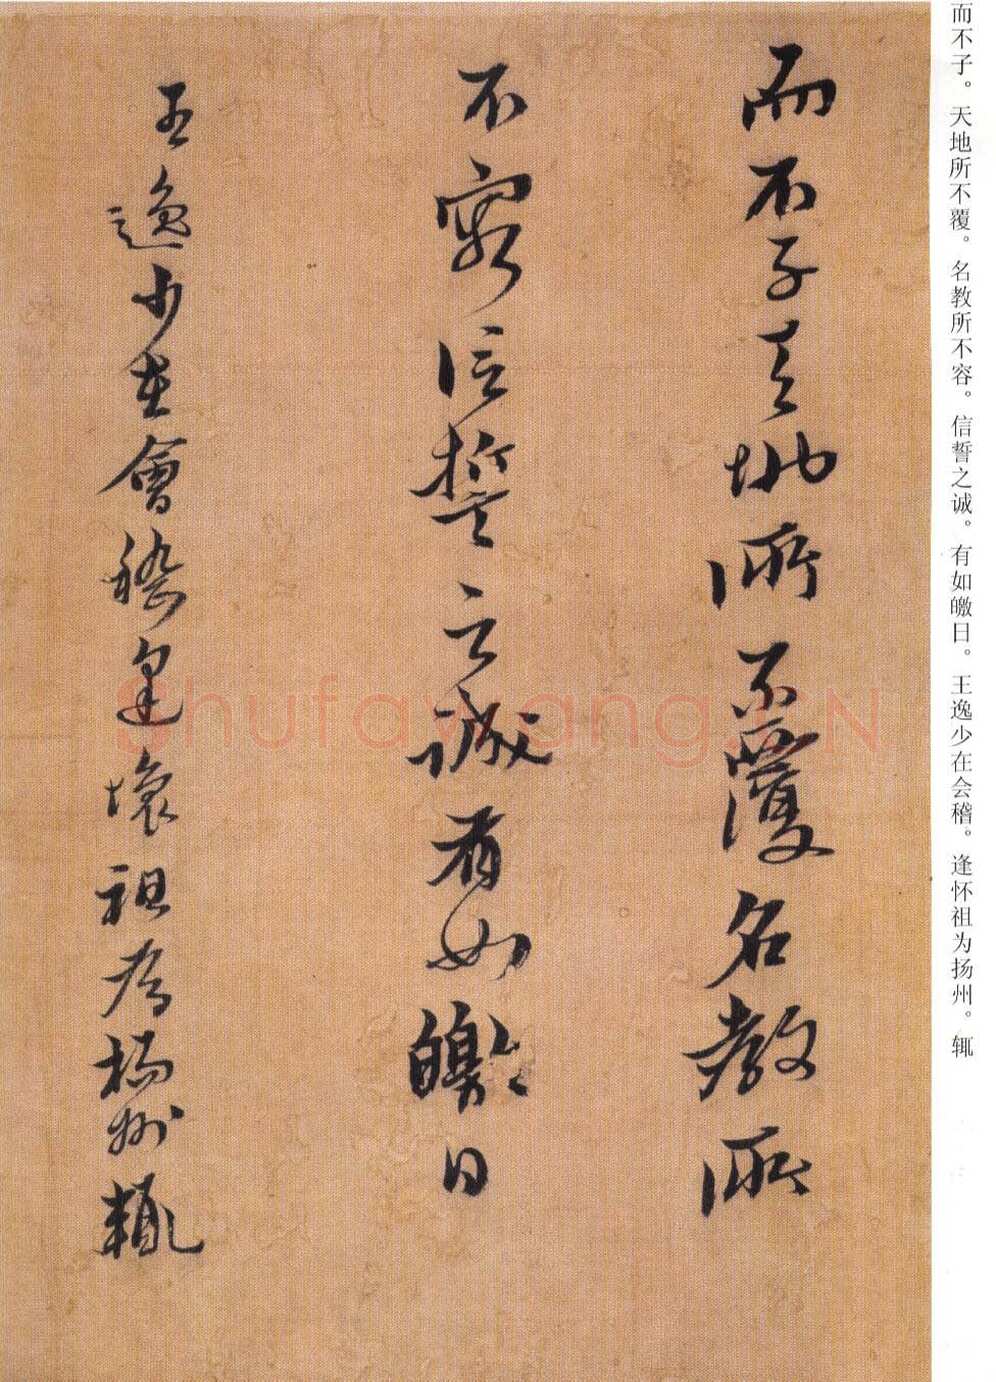 而不子。天地所不覆。名教所不容。信誓之诚。有如皦日。王逸少在会稽。逢怀祖为扬州。辄
而不子天地所不覆名教所
不容信誓之誠有如皦日
王逸少在會稽逢懷祖為楊州輒
Shufawang.CN